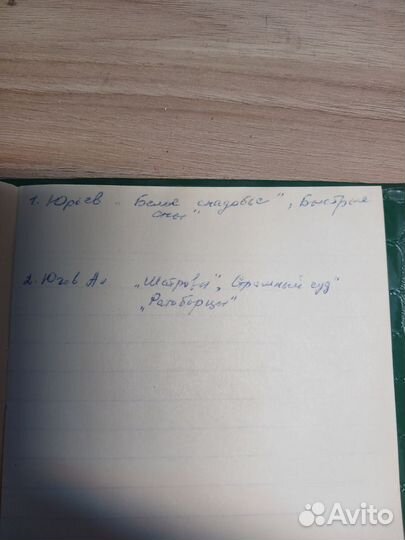 1. Юрьев „Белые свадьбы", „Быстрые
сны"
2. Югов Ал „Шатровы", „Страшный суд"
„Ратоборцы"
Avito